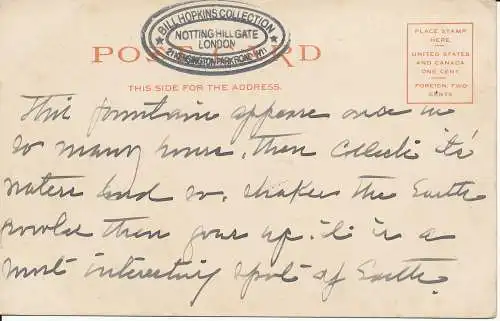 BILL HOPKINS COLLECTION
NOTTING HILL GATE
LONDON
POST CARD
THIS SIDE FOR THE ADDRESS.
PLACE STAMP
HERE.
UNITED STATES
AND CANADA
ONE CENT.
FOREIGN, TWO
CENTS
This fountain appears once in
so many hours, then collects its
waters and so, shakes the Earth
then goes up. it is a
most interesting spot of Earth.